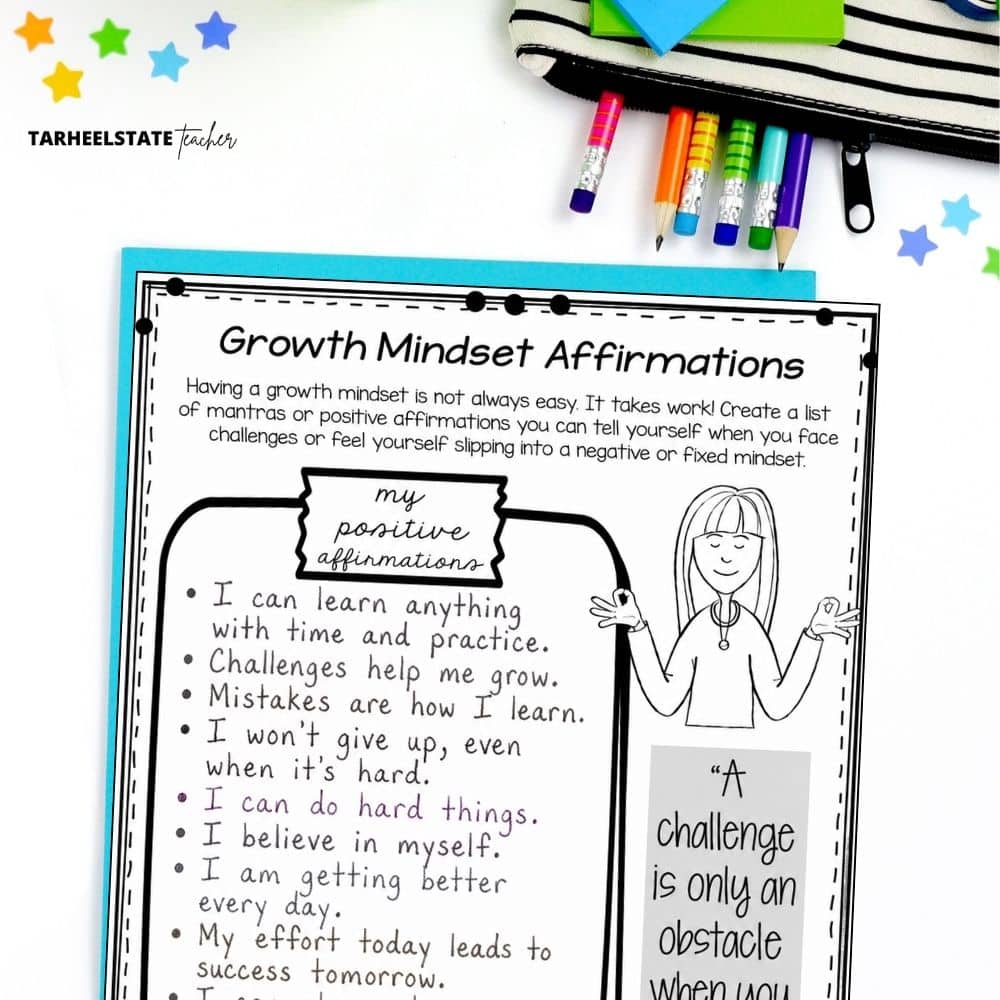 TARHEELSTATE teacher
Growth Mindset Affirmations
Having a growth mindset is not always easy. It takes work! Create a list
of mantras or positive affirmations you can tell yourself when you face
challenges or feel yourself slipping into a negative or fixed mindset.
my
positive
affirmations
• I can learn anything
with time and practice.
• Challenges help me grow.
• Mistakes are how I learn.
• I won't give up, even
when it's hard.
• I can do hard things.
• I believe in myself.
• I am getting better
every day.
• My effort today leads to
success tomorrow.
• I
“A
challenge
is only an
obstacle
when you